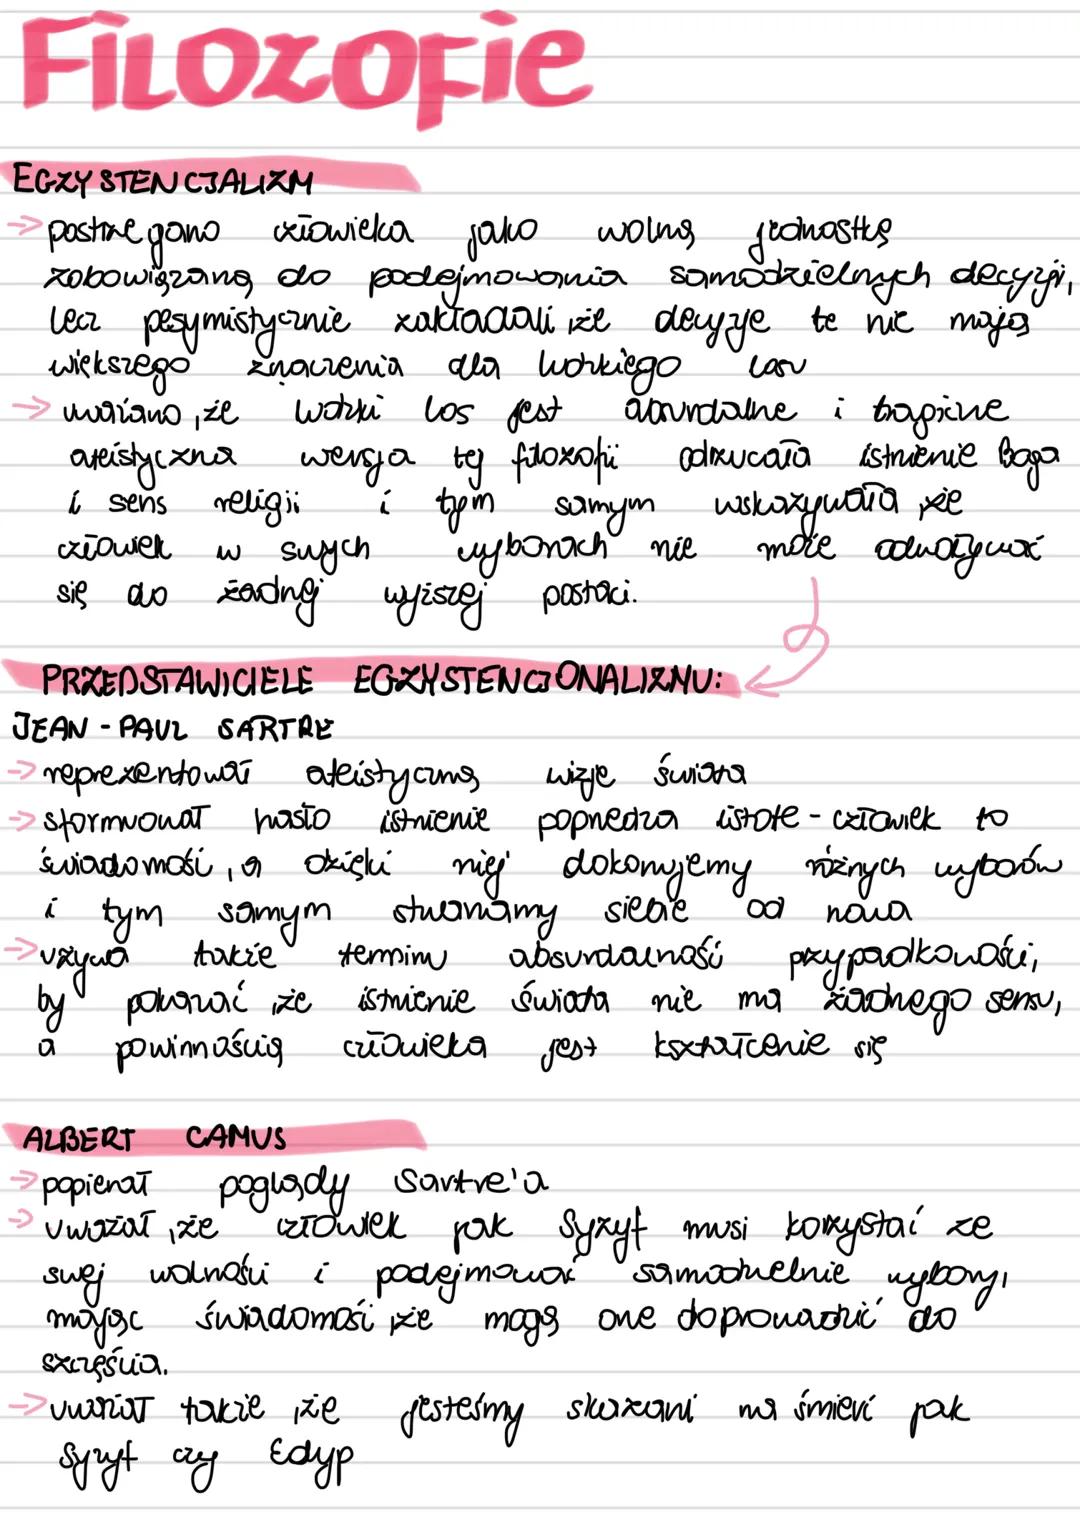 FiLOZOFie
EGZYSTENCJALIZM
→ postrzegano człowieka jako wolną jednostkę
zobowiązaną do podejmowania samodzielnych decyzji,
lecz pesymistycznie zakładali, że decyzje te nie mają
większego znaczenia dla ludzkiego losu
→ uważano, że ludzki los jest absurdalne i tragiczne
ateistyczna wersja tej filozofii odrzucała istnienie Boga
i sens religii i tym samym wskazywała, że
człowiek w swych wyborach nie może odwoływać
się do żadnej wyższej postaci.
PRZEDSTAWICIELE EGZYSTENCJONALIZMU:
JEAN-PAUL SARTRE
→ reprezentował ateistyczną wizję świata
→ sformuował hasło istnienie poprzedza istotę - człowiek to
świadomość, a dzięki niej dokonujemy różnych wyborów
i tym samym stwarzamy siebie od nowa
→ używa także terminu absurdalność przypadkowości,
by pokazać, że istnienie świata nie ma żadnego sensu,
a powinnością człowieka jest kształcenie się
ALBERT CAMUS
→ popierał poglądy Sartre'a
→ uważał, że człowiek jak Syzyf musi korzystać ze
swej wolności i podejmować samodzielnie wybory,
mając świadomość, że mogą one doprowadzić do
szczęścia.
→ uważał także, że jesteśmy skazani na śmierć jak
Syzyf czy Edyp